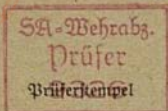 SA-Wehrabz.
Prüfer
Prüferstempel